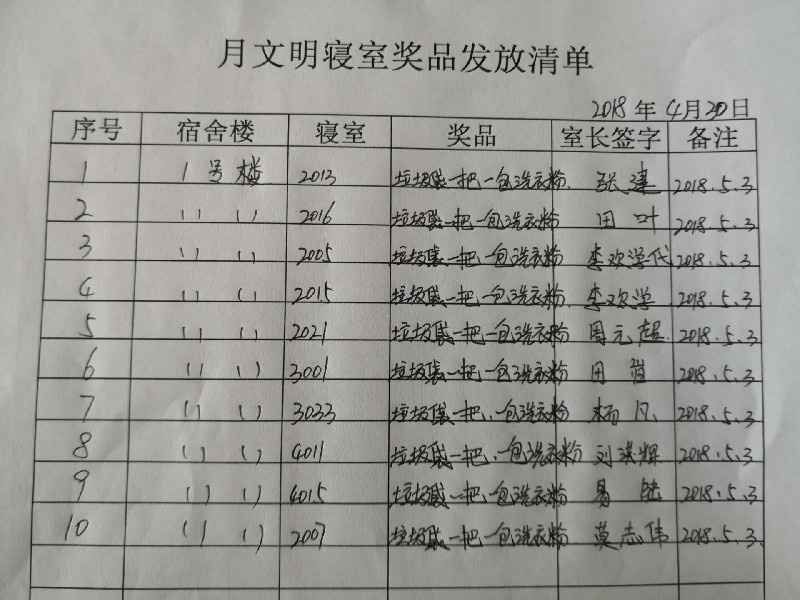 月文明寝室奖品发放清单
2018年4月30日
序号 宿舍楼 寝室 奖品 室长签字 备注
1 1号楼 2013 垃圾袋一把一包洗衣粉. 张建 2018.5.3
2 〃 〃 2016 垃圾袋一把一包洗衣粉 田叶 2018.5.3
3 〃 〃 2005 垃圾袋一把一包洗衣粉 李欢学代 2018.5.3
4 〃 〃 2015 垃圾袋一把一包洗衣粉 李欢学 2018.5.3
5 〃 〃 2021 垃圾袋一把一包洗衣粉 周元超 2018.5.3
6 〃 〃 3001 垃圾袋一把一包洗衣粉 田 2018.5.3
7 〃 〃 3033 垃圾袋一把.一包洗衣粉 杨凡 2018.5.3
8 〃 〃 4011 垃圾袋一把.一包洗衣粉 刘淇辉 2018.5.3
9 〃 〃 4015 垃圾袋一把一包洗衣粉 易陆 2018.5.3
10 〃 〃 2007 垃圾袋一把一包洗衣粉 莫志伟 2018.5.3